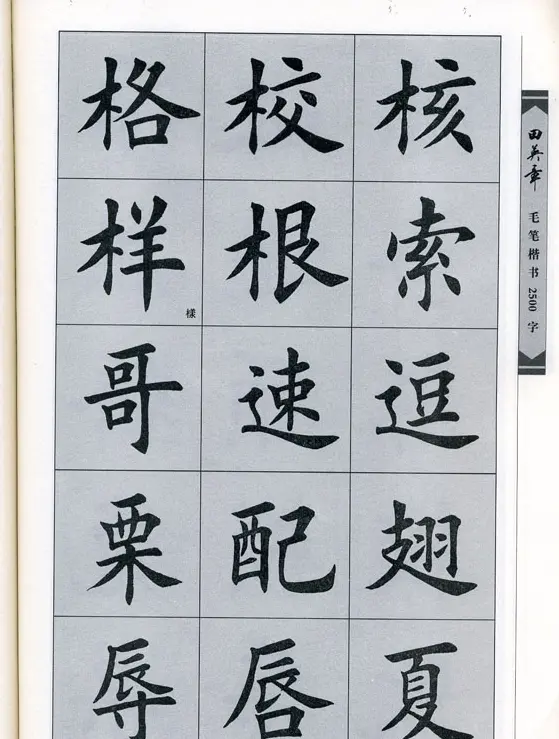 格 校 核
样 根 索
樣
哥 速 逗
栗 配 翅
辱 唇 夏
田英章
毛笔楷书2500字